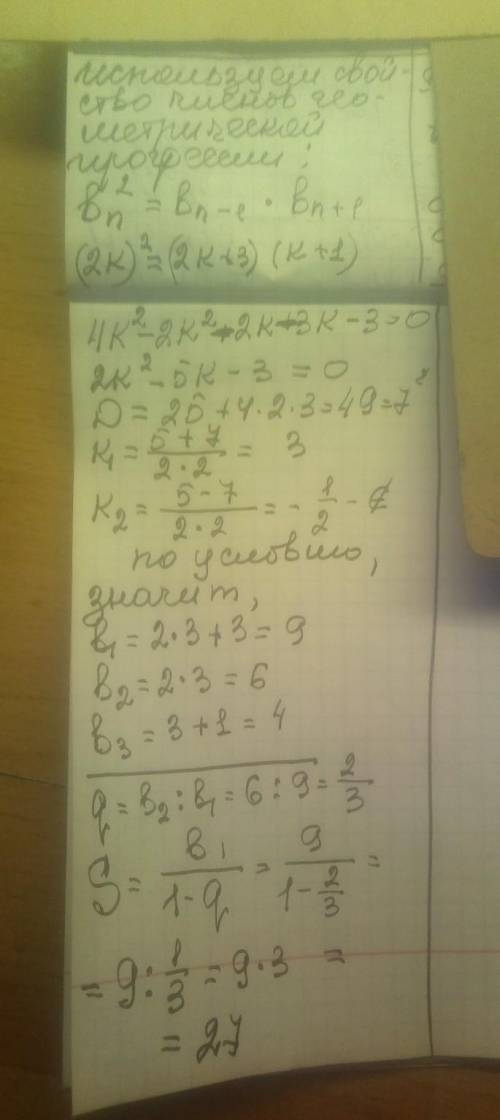 используем свой-
ство членов гео-
метрической
прогрессии:
bₙ² = bₙ₋₁ · bₙ₊₁
(2к)² = (2к+3)(к+1)
4к² - 2к² - 2к - 3к - 3 = 0
2к² - 5к - 3 = 0
D = 25 + 4·2·3 = 49 = 7²
к₁ = (5+7)/(2·2) = 3
к₂ = (5-7)/(2·2) = -1/2 - ∉
по условию,
значит,
b₁ = 2·3+3 = 9
b₂ = 2·3 = 6
b₃ = 3+1 = 4
q = b₂ : b₁ = 6 : 9 = 2/3
S = b₁/(1-q) = 9/(1-2/3) =
= 9 : 1/3 = 9·3 =
= 27